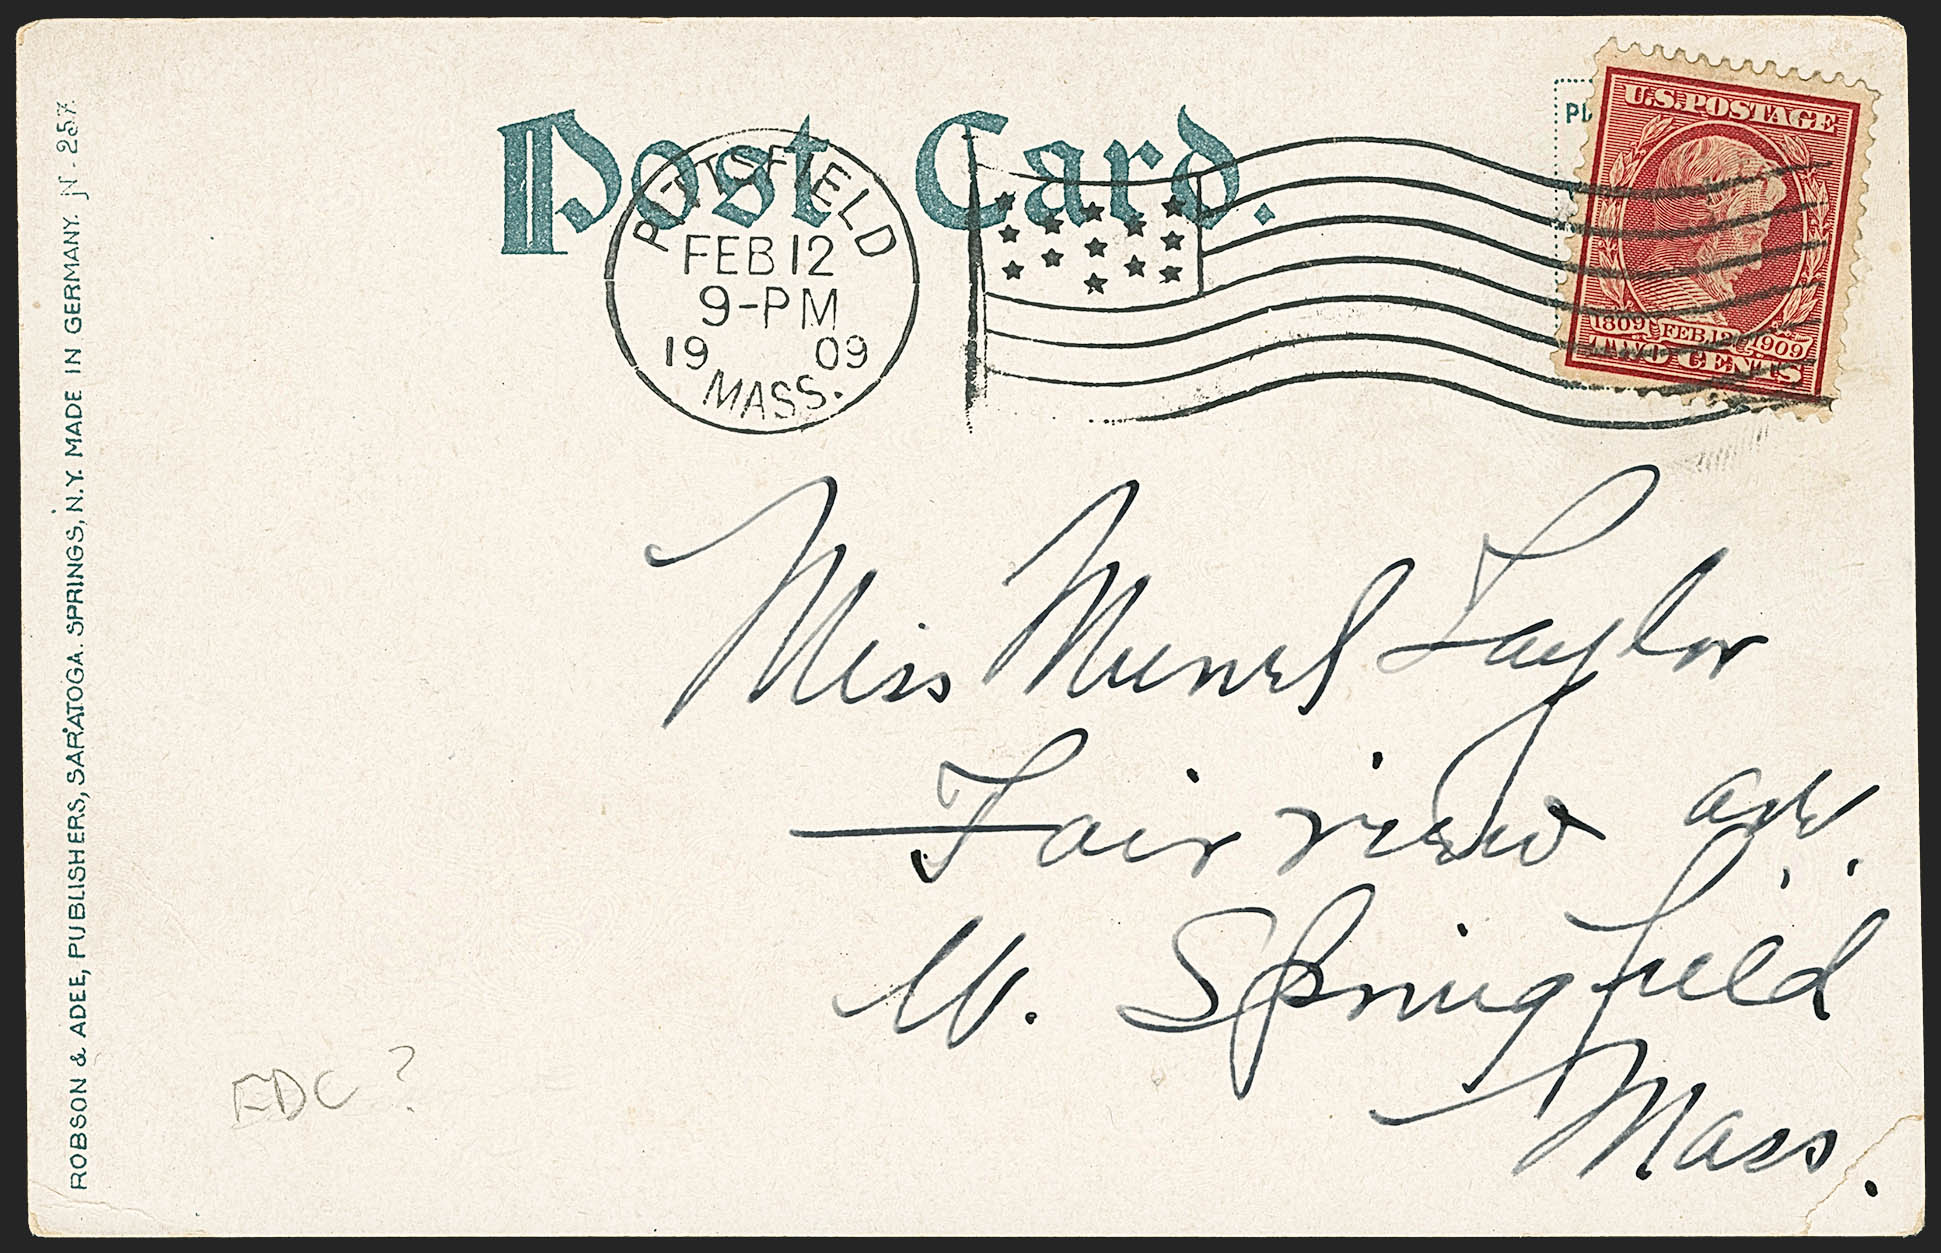 Post Card.
PITTSFIELD
FEB 12
9-PM
19 09
MASS.
PL
U.S. POSTAGE
1809 FEB. 12 1909
TWO CENTS
Miss Muriel Taylor
Fairview ave.
W. Springfield
Mass.
FDC ?
ROBSON & ADEE, PUBLISHERS, SARATOGA. SPRINGS, N.Y. MADE IN GERMANY. N - 257.